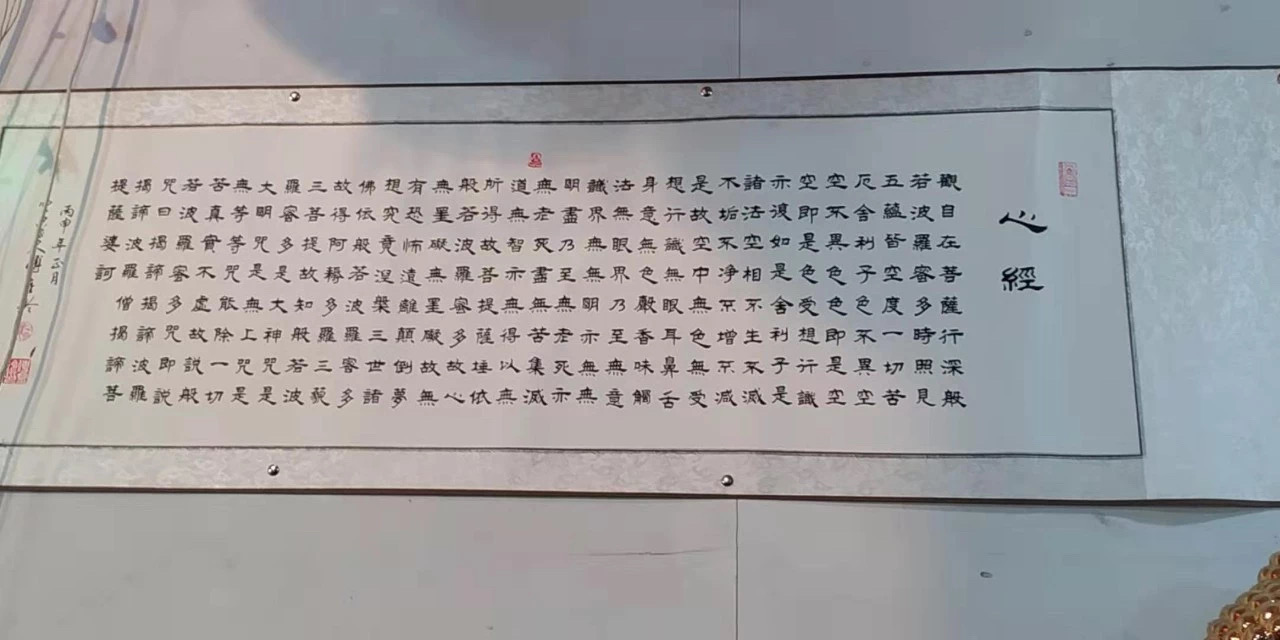 心經
觀自在菩薩行深般
若波羅蜜多時照見
五蘊皆空度一切苦
厄舍利子色不異空
空不異色色即是空
空即是色受想行識
亦復如是舍利子是
諸法空相不生不滅
不垢不净不增不減
是故空中無色無受
想行識無眼耳鼻舌
身意無色聲香味觸
法無眼界乃至無意
識界無無明亦無無
明盡乃至無老死亦
無老死盡無苦集滅
道無智亦無得以無
所得故菩提薩埵依
般若波羅蜜多故心
無罣礙無罣礙故無
有恐怖遠離顛倒夢
想究竟涅槃三世諸
佛依般若波羅蜜多
故得阿耨多羅三藐
三菩提故知般若波
羅蜜多是大神咒是
大明咒是無上咒是
無等等咒能除一切
苦真實不虛故說般
若波羅蜜多咒即說
咒曰揭諦揭諦波羅
揭諦波羅僧揭諦菩
提薩婆訶
丙申年正月